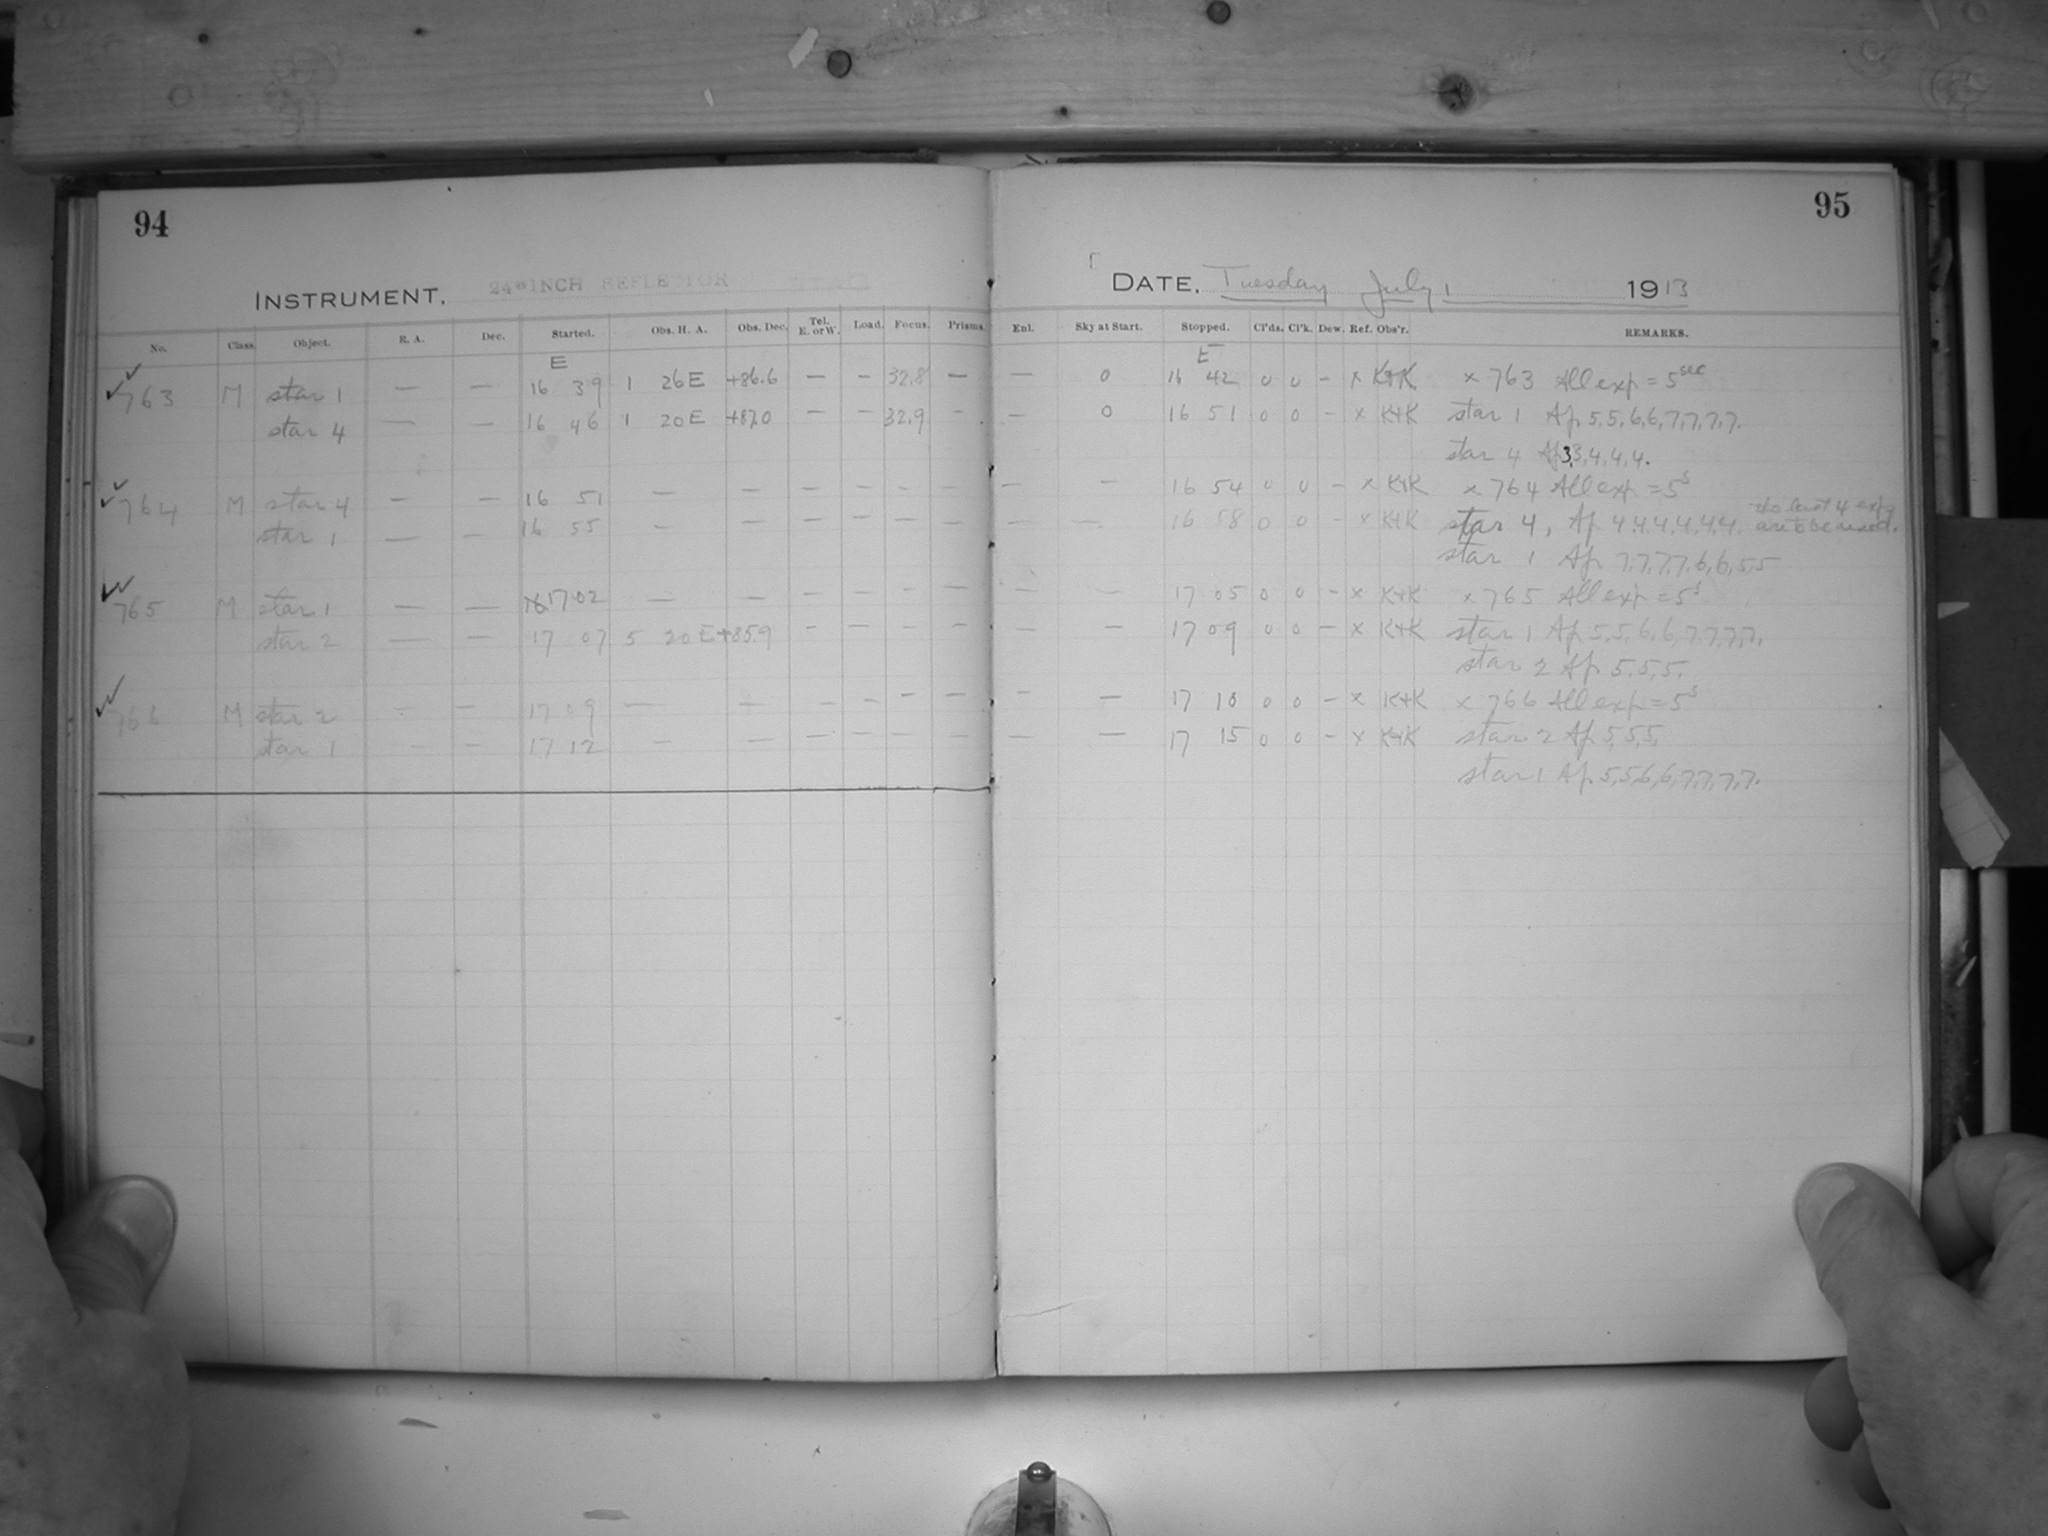 94
INSTRUMENT. 24-INCH REFLECTOR
No. Class. Object. R. A. Dec. Started. Obs. H. A. Obs. Dec. Tel. E. or W. Load. Focus. Prisms.
E
763 M star 1 — — 16 39 1 26E +86.6 — — 32.8 —
star 4 — — 16 46 1 20E +87.0 — — 32.9 -
764 M star 4 — — 16 51 — — — — — —
star 1 — — 16 55 — — — — — —
765 M star 1 — — 17 02 — — — — — —
star 2 — — 17 07 5 20E +85.9 — — — —
766 M star 2 — — 17 09 — — — — — —
star 1 — — 17 12 — — — — — —
95
DATE, Tuesday July 1 1913
Enl. Sky at Start. Stopped. Cl'ds. Cl'k. Dew. Ref. Obs'r. REMARKS.
E
— 0 16 42 0 0 - x K+K x 763 All exp = 5 sec
— 0 16 51 0 0 - x K+K star 1 Ap 5,5,6,6,7,7,7,7.
star 4 Ap 3,3,4,4,4.
— — 16 54 0 0 - x K+K x 764 All exp = 5s
— — 16 58 0 0 - x K+K star 4, Ap 4.4.4.4.4.4. the last 4 exp
are to be used.
star 1 Ap 7,7,7,7,6,6,5,5
— — 17 05 0 0 - x K+K x 765 All exp = 5s
— — 17 09 0 0 - x K+K star 1 Ap 5,5,6,6,7,7,7,7.
star 2 Ap 5,5,5.
— — 17 10 0 0 - x K+K x 766 All exp = 5s
— — 17 15 0 0 - x K+K star 2 Ap 5,5,5,
star 1 Ap 5,5,6,6,7,7,7,7.